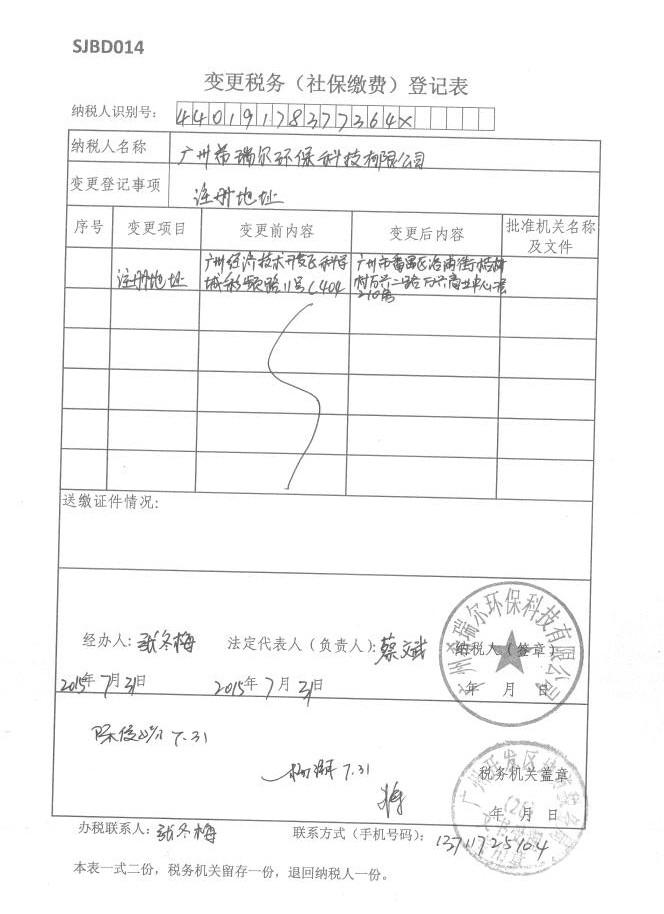 SJBD014
变更税务（社保缴费）登记表
纳税人识别号：44019178377364X
纳税人名称 广州市瑞尔环保科技有限公司
变更登记事项 注册地址
序号 变更项目 变更前内容 变更后内容 批准机关名称及文件
注册地址
广州经济技术开发区科学
城彩频路11号C404
广州市番禺区洛浦街
村万兴二路万兴商业中心二层
210房
送缴证件情况：
经办人：张冬梅 法定代表人（负责人）：蔡文斌 纳税人（签章）
2015年7月31日 2015年7月31日 年 月 日
瑞尔环保科技有限公司
陈俊 7.31
7.31
税务机关盖章
年 月 日
广州开发区
办税联系人：张冬梅 联系方式（手机号码）：13711725104
本表一式二份，税务机关留存一份，退回纳税人一份。